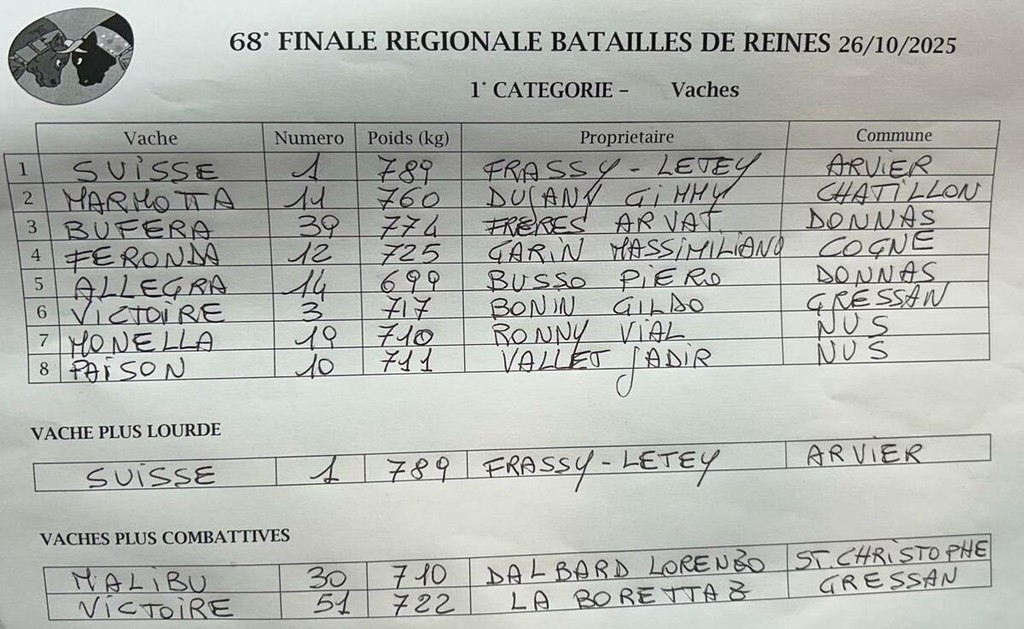 68° FINALE REGIONALE BATAILLES DE REINES 26/10/2025
1° CATEGORIE – Vaches
Vache Numero Poids (kg) Proprietaire Commune
1 SUISSE 1 789 FRASSY - LETEY ARVIER
2 MARMOTTA 11 760 DUJANY GIMMY CHATILLON
3 BUFERA 39 774 FRERES ARVAT DONNAS
4 FERONDA 12 725 GARIN MASSIMILIANO COGNE
5 ALLEGRA 14 699 BUSSO PIERO DONNAS
6 VICTOIRE 3 717 BONIN GILDO GRESSAN
7 MONELLA 19 710 RONNY VIAL NUS
8 PAISON 10 711 VALLET JADIR NUS
VACHE PLUS LOURDE
SUISSE 1 789 FRASSY-LETEY ARVIER
VACHES PLUS COMBATTIVES
MALIBU 30 710 DALBARD LORENZO ST.CHRISTOPHE
VICTOIRE 51 722 LA BORETTAZ GRESSAN